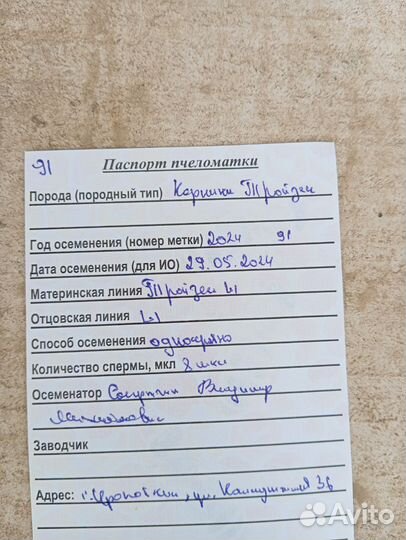 91 Паспорт пчеломатки
Порода (породный тип) Карника Тройзек
Год осеменения (номер метки) 2024 91
Дата осеменения (для ИО) 29.05.2024
Материнская линия Тройзек
Отцовская линия
Способ осеменения однократно
Количество спермы, мкл 8 мкл
Осеменатор Владимир
Заводчик
Адрес: г. Кропоткин, ул.
Avito